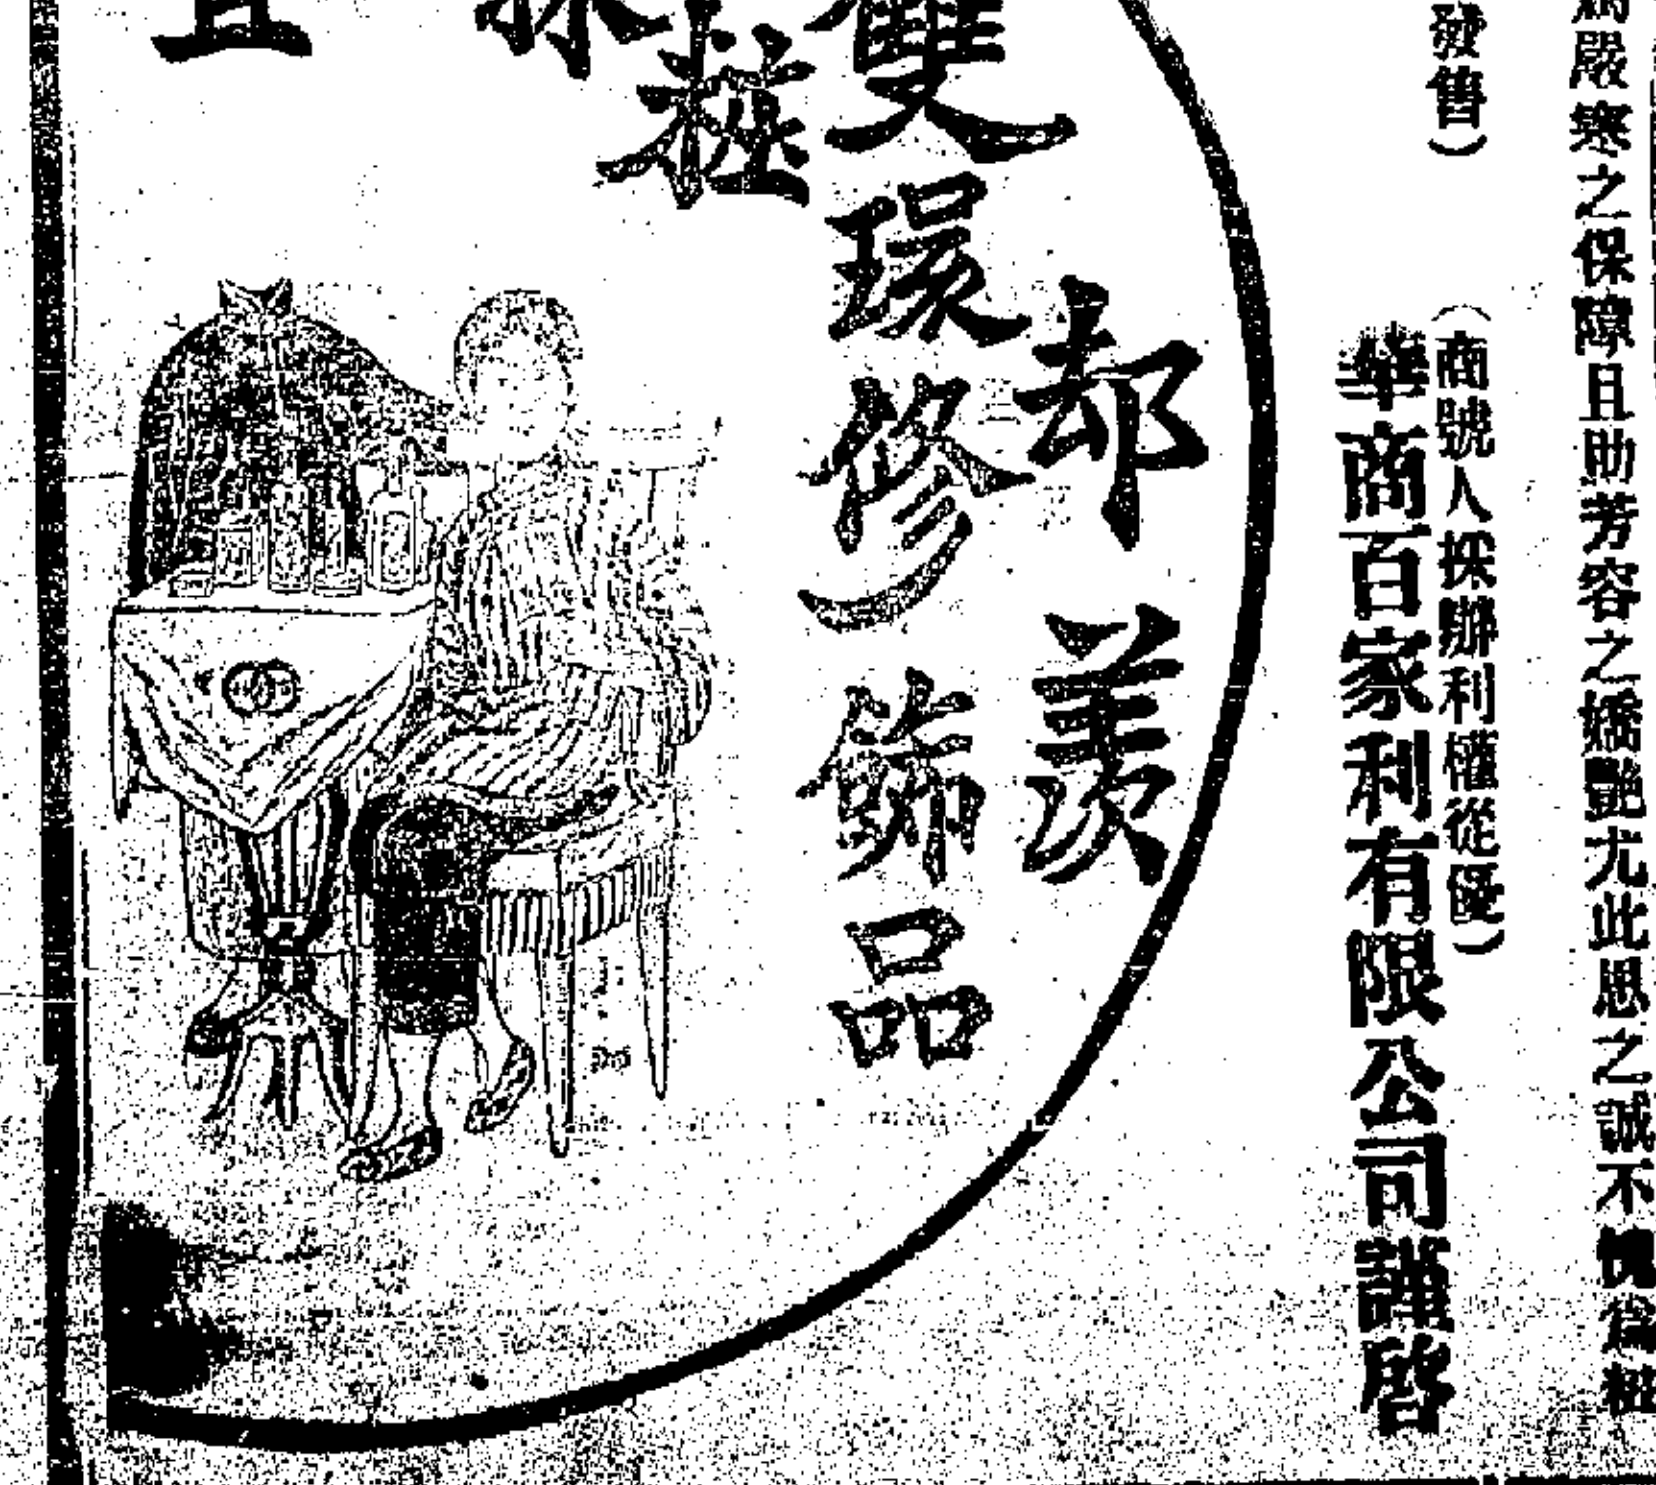 嚴寒之保障且助芳容之嬌艷尤此思之誠不愧爲
發售）
（商號人採辦利權從優）
華商百家利有限公司謹啓
都羨
雙環修飾品